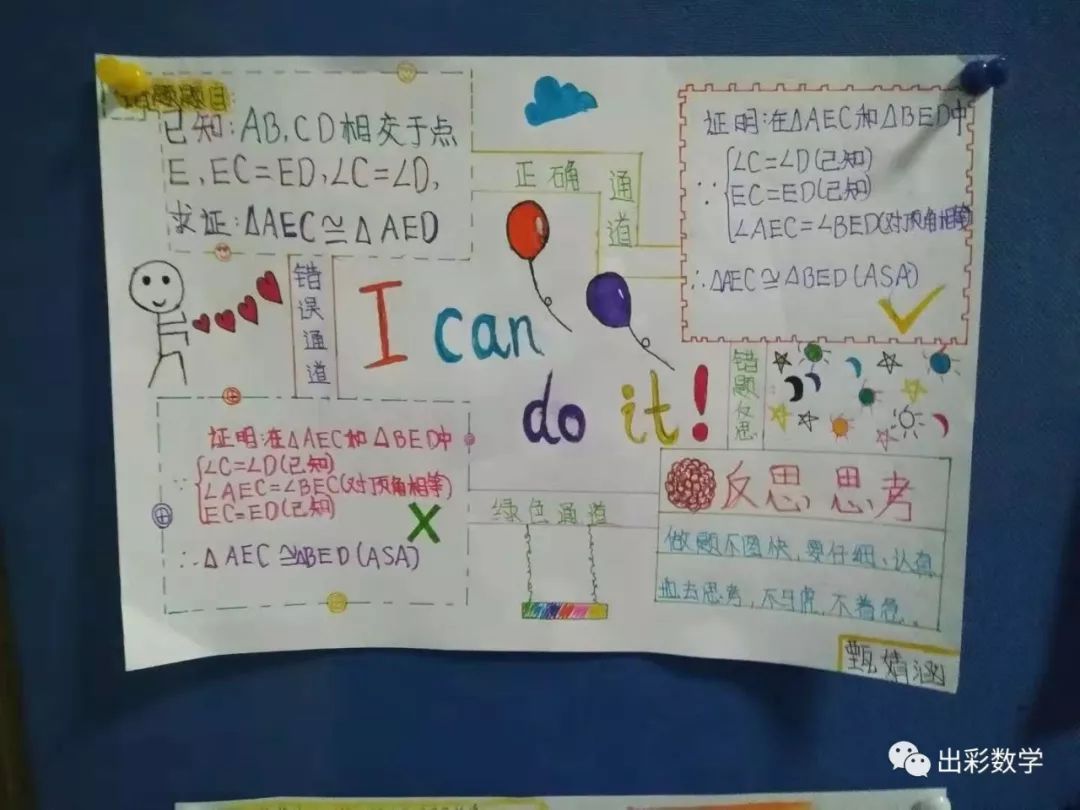 错题题目:
已知:AB,CD相交于点
E,EC=ED,∠C=∠D,
求证:△AEC≌△AED
正确通道
证明:在△AEC和△BED中
∠C=∠D(已知)
∵ EC=ED(已知)
∠AEC=∠BED(对顶角相等)
∴△AEC≌△BED(ASA)
错误通道
I can
do it!
错题反思
证明:在△AEC和△BED中
∠C=∠D(已知)
∵ ∠AEC=∠BEC(对顶角相等)
EC=ED(已知)
∴△AEC≌△BED(ASA)
绿色通道
反思思考
做题不图快,要仔细、认真
地去思考,不马虎,不着急。
甄婧涵
出彩数学